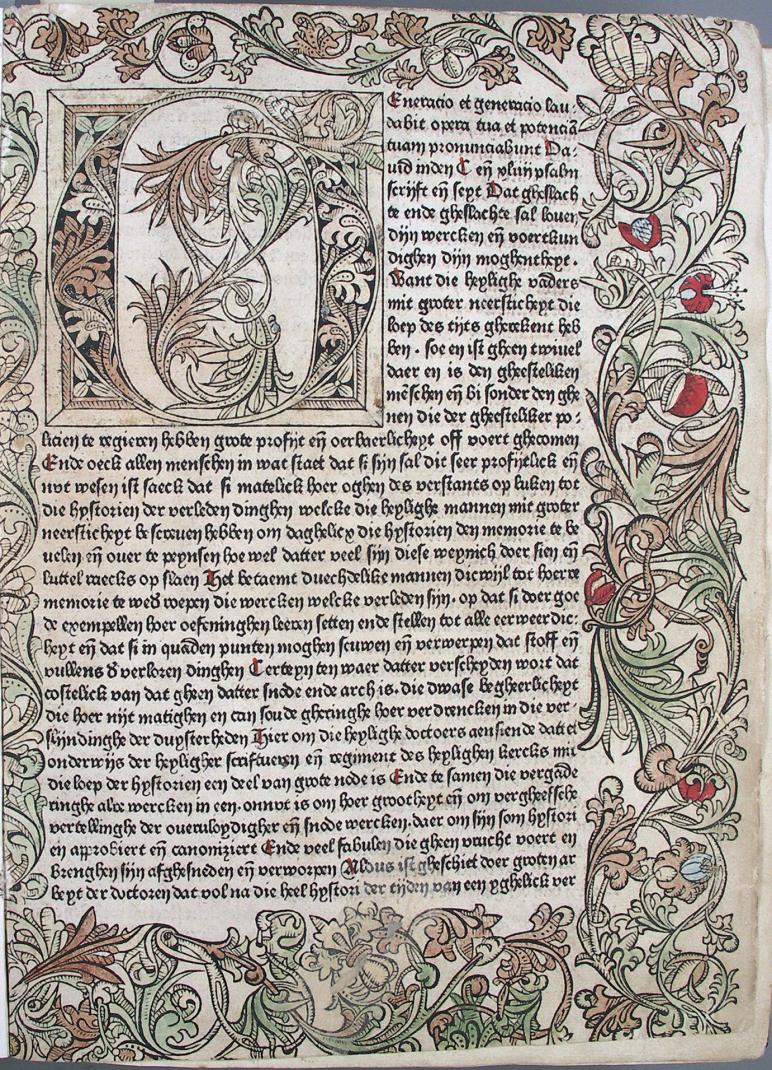 Eneracio et generacio lau⸗
dabit opera tua et potenciā
tuam pronunciabunt Da⸗
uid inden C eñ xliiij psalm
scrijft eñ seyt Dat gheslach
te ende gheslachte sal louen
dijn wercken eñ voertkun
dighen dijn moghentheyt.
Want die heylighe vāders
mit groter neersticheyt die
loep des tijts gherekent heb
ben. soe en ist gheen twiuel
daer en is den gheesteliken
mēschen eñ bi sonder den ghe
nen die der gheesteliker po⸗
licien te regieren hebben grote profijt eñ oerbaerlicheyt off voert ghecomen
Ende oeck allen menschen in wat staet dat si sijn sal dit seer profijtelick eñ
nvt wesen ist saeck dat si matelick hoer oghen des verstants op luken tot
die hystorien der verleden dinghen welcke die heylighe mannen mit groter
neersticheyt be screuen hebben om daghelicx die hystorien den memorie te be
uelen eñ ouer te peynsen hoe wel datter veel sijn diese weynich doer sien eñ
luttel raecks op slaen Het betaemt duechdelike mannen dicwijl tot hoerre
memorie te wed̕ roepen die wercken welcke verleden sijn. op dat si doer goe
de exempellen hoer oefeninghen leeran setten ende stellen tot alle eerweerdic⸗
heyt eñ dat si in quaden punten moghen scuwen eñ verwerpen dat stoff eñ
vullens d̕ verloren dinghen Certeyn ten waer datter verscheyden wort dat
costelick van dat gheen datter snode ende arch is. die dwase begheerlicheyt
die hoer nijt matighen en can soude gheringhe hoer verdrencken in die ver⸗
slijndinghe der duysterheden Hier om die heylighe doctoers aensiende dattet
onderwijs der heyligher scriftueren eñ regiment des heylighen kercks mit
die loep der hystorien een deel van grote node is Ende te samen die vergade
ringhe alre wercken in een. onnvt is om hoer grootheyt eñ om vergheefsche
vertellinghe der ouervloydigher eñ snode wercken. daer om sijn som hystori
en approbiert eñ canoniziert Ende veel fabulen die gheen vrucht voert en
brenghen sijn afghesneden eñ verworpen Aldus ist gheschiet doer groten ar
beyt der doctoren dat vol na die heel hystori der tijden van een yghelick ver